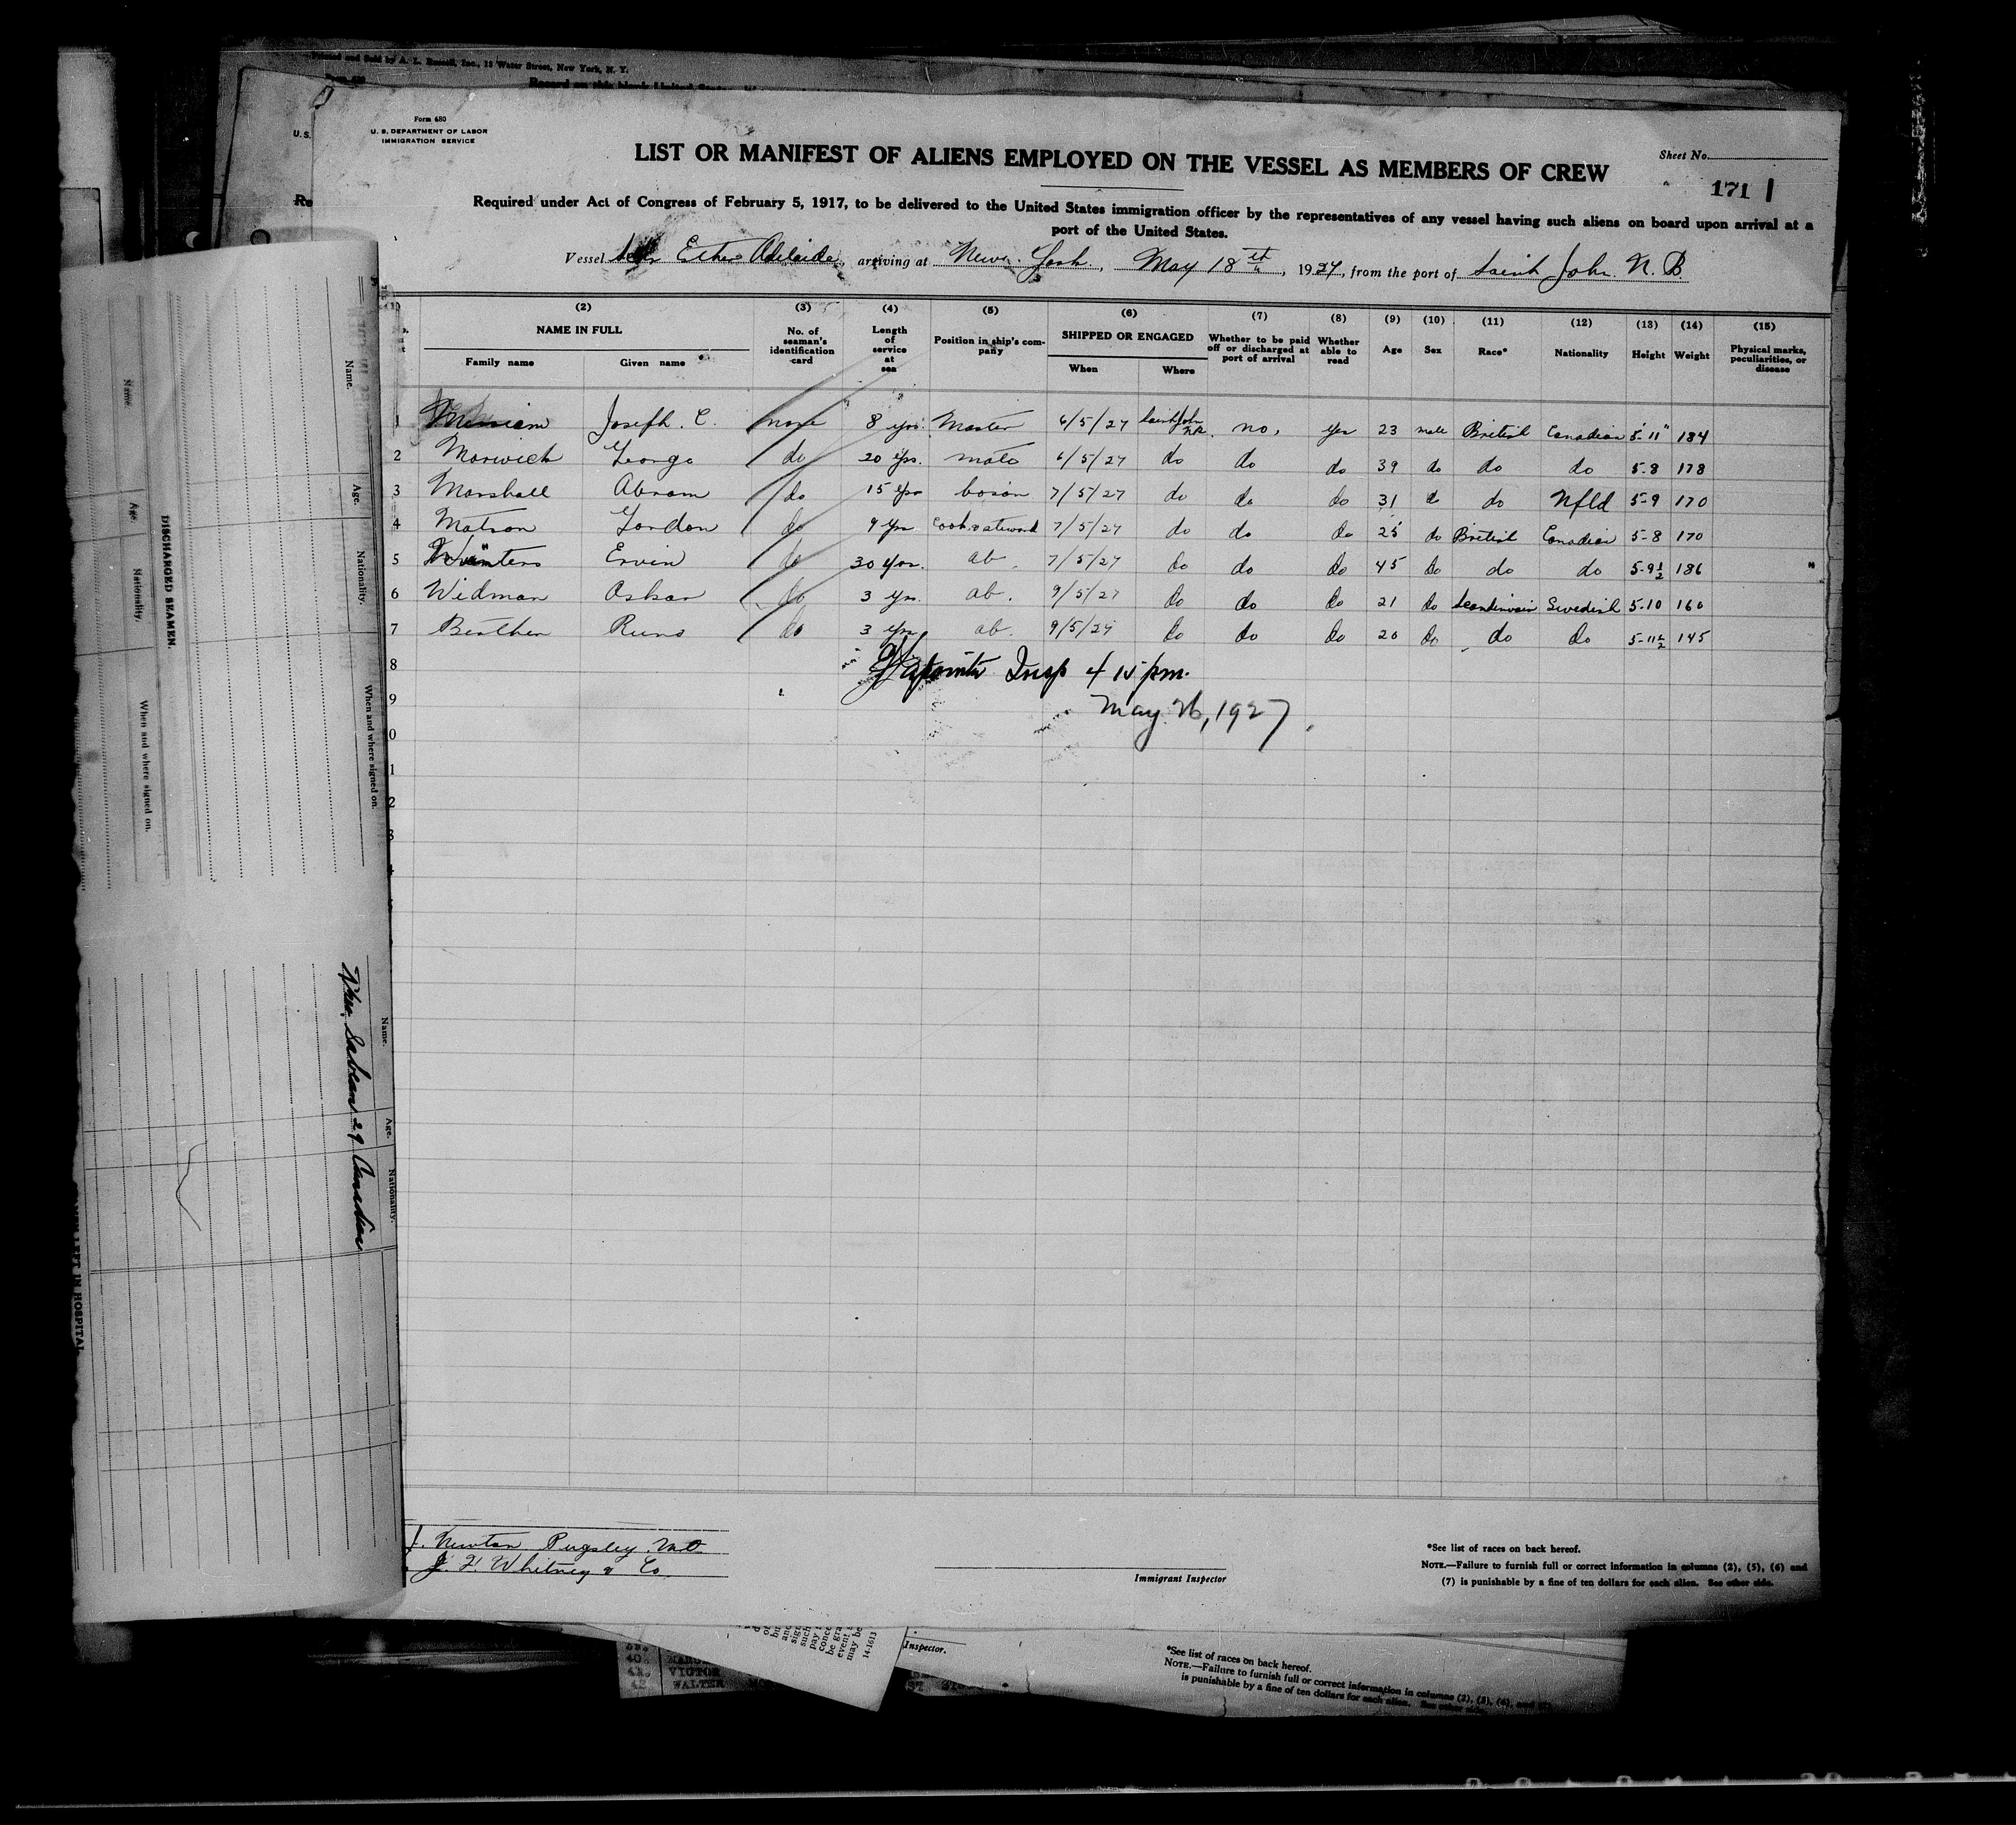 Printed and Sold by A. L. Russell, Inc., 13 Water Street, New York, N. Y.
U.S.
Re
Form 680
U. S. DEPARTMENT OF LABOR
IMMIGRATION SERVICE
LIST OR MANIFEST OF ALIENS EMPLOYED ON THE VESSEL AS MEMBERS OF CREW
Sheet No.
171
Required under Act of Congress of February 5, 1917, to be delivered to the United States immigration officer by the representatives of any vessel having such aliens on board upon arrival at a
port of the United States.
Vessel Esther Adelaide, arriving at New York, May 18th, 1927, from the port of Saint John N. B.
(2) (3) (4) (5) (6) (7) (8) (9) (10) (11) (12) (13) (14) (15)
NAME IN FULL
Family name Given name
No. of seaman's identification card
Length of service at sea
Position in ship's company
SHIPPED OR ENGAGED
When Where
Whether to be paid off or discharged at port of arrival
Whether able to read
Age
Sex
Race*
Nationality
Height
Weight
Physical marks, peculiarities, or disease
1 Merriam Joseph. C. none 8 yrs. Master 6/5/27 Saint John NB. no, yes 23 male British Canadian 5'-11" 184
2 Morwick George do 20 yrs. mate 6/5/27 do do do 39 do do do 5-8 178
3 Marshall Abram do 15 yrs bosun 7/5/27 do do do 31 do do Nfld 5-9 170
4 Matson Gordon do 9 yrs Cook & steward 7/5/27 do do do 25 do British Canadian 5-8 170
5 Winters Ervin do 30 yrs. ab. 7/5/27 do do do 45 do do do 5-9½ 186
6 Widman Oskar do 3 yrs. ab. 9/5/27 do do do 21 do Scandinavian Swedish 5-10 160
7 Runo do 3 yrs ab. 9/5/27 do do do 20 do do do 5-11½ 145
8 Insp 4 15 pm.
9 May 26, 1927
0
1
2
3
Name.
Age.
Nationality.
When and where signed on.
DISCHARGED SEAMEN.
Name.
Age.
Nationality.
When and where signed on.
Name.
Age.
Nationality.
Sabean 29 Canadian
LEFT IN HOSPITAL
J. Newton Pugsley
J. F. Whitney & Co.
Immigrant Inspector
*See list of races on back hereof.
NOTE.—Failure to furnish full or correct information in columns (2), (5), (6) and
(7) is punishable by a fine of ten dollars for each alien. See other side.
Inspector.
14-1613
VICTOR
WALTER
*See list of races on back hereof.
NOTE.—Failure to furnish full or correct information in columns (2), (5), (6), and
is punishable by a fine of ten dollars for each alien.